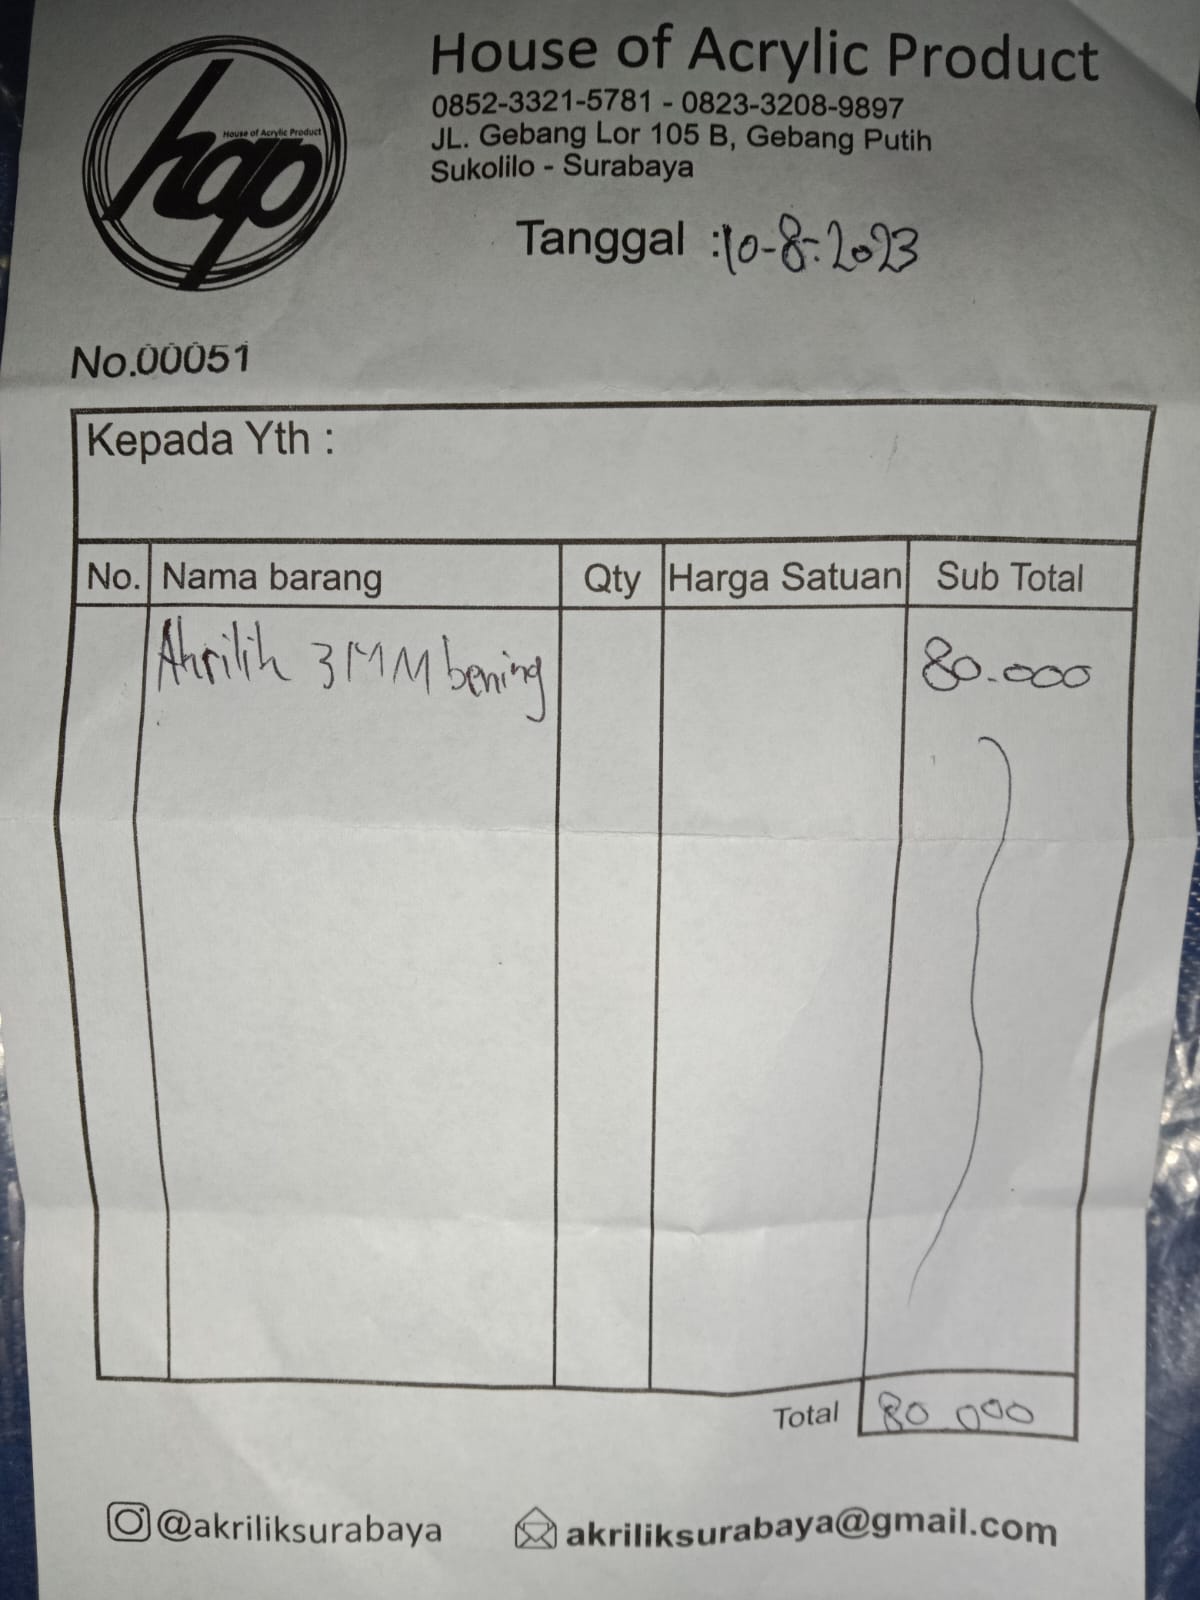 hap
House of Acrylic Product
House of Acrylic Product
0852-3321-5781 - 0823-3208-9897
JL. Gebang Lor 105 B, Gebang Putih
Sukolilo - Surabaya
Tanggal : 10-8-2023
No.00051
Kepada Yth :
No. Nama barang Qty Harga Satuan Sub Total
Akrilik 3MM bening 80.000
Total 80.000
@akriliksurabaya akriliksurabaya@gmail.com